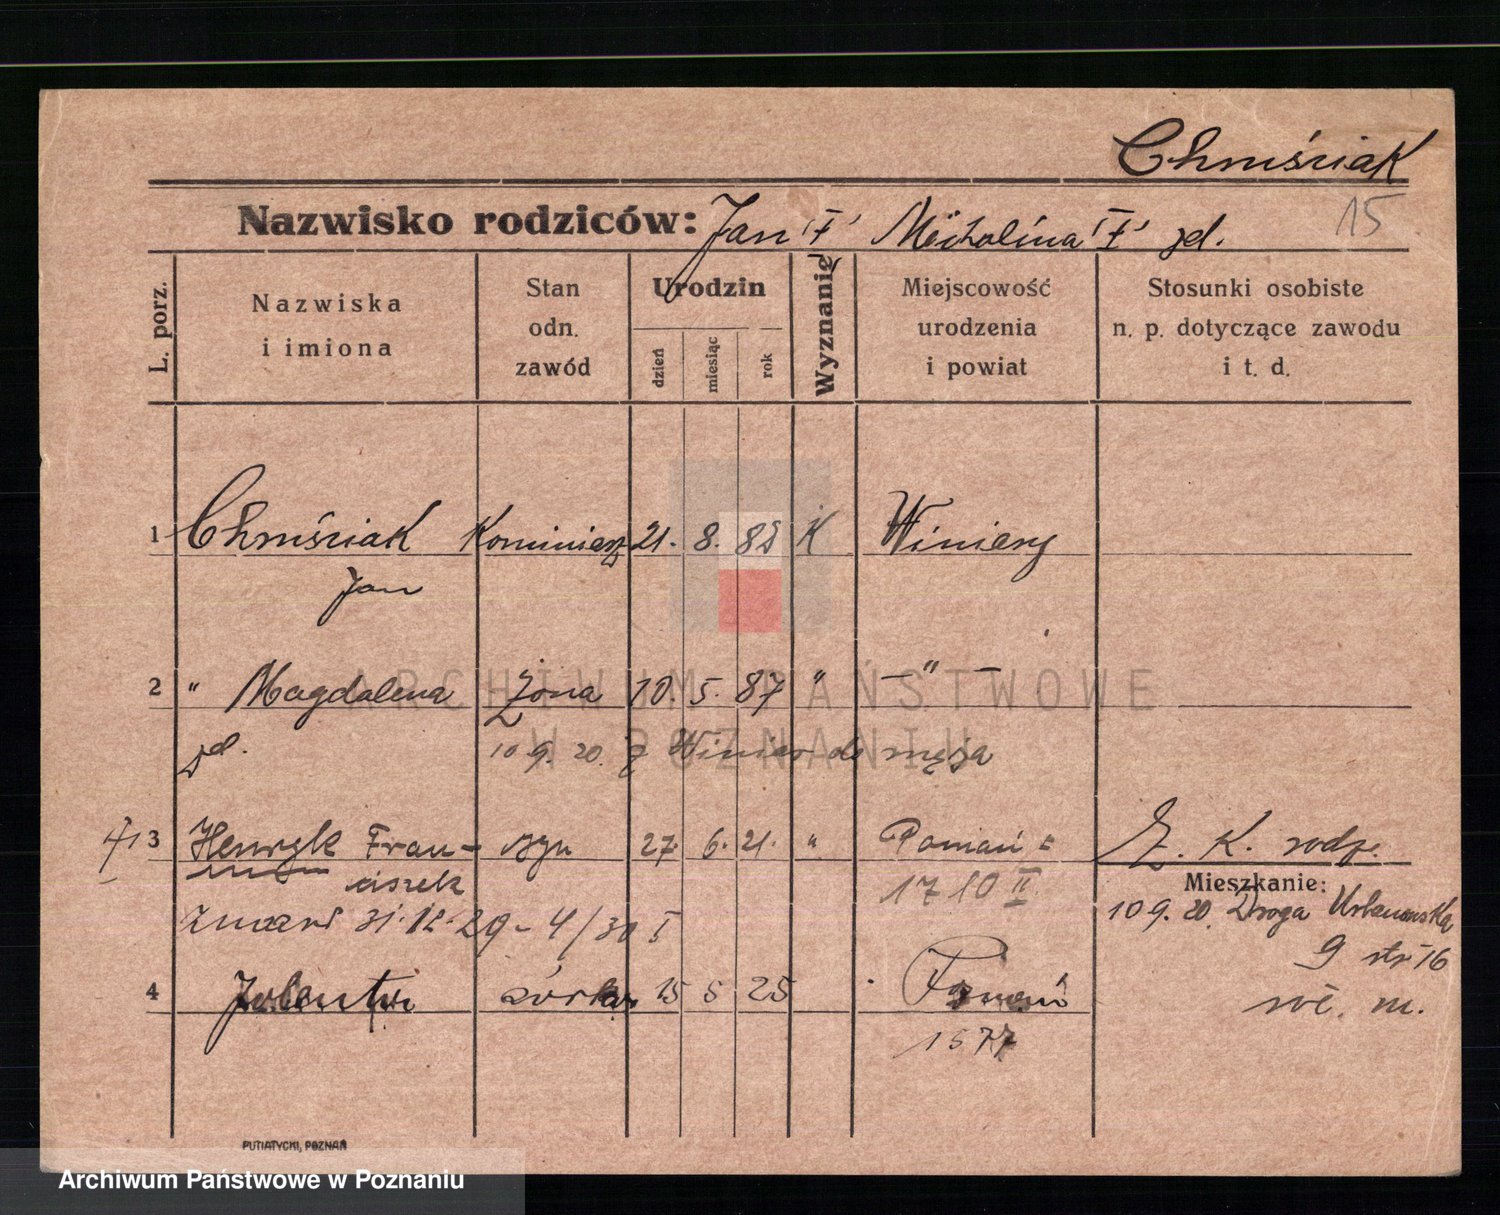 Chmśriak
15
Nazwisko rodziców: Jan "†" Michalina "†" zd.
L. porz.
Nazwiska
i imiona
Stan
odn.
zawód
Urodzin
dzień
miesiąc
rok
Wyznanie
Miejscowość
urodzenia
i powiat
Stosunki osobiste
n. p. dotyczące zawodu
i t. d.
1 Kominiarz 21. 8. 82 K Winiary
Jan
2 " Magdalena Żona 10. 5. 87 " - " -
zd. 10 9. 20. z Winiar do męża
3 Henryk Fran- syn 27. 6. 21. " Poznań
ciszek 1710 II
Z. K. rodz.
Mieszkanie:
10 9. 20. Droga Urbanowska
9 str 16
zmarł 31.12.29 - 4/30 I
4 córka 15 5 25 Poznań
1577
PUTIATYCKI, POZNAŃ
ARCHIWUM PAŃSTWOWE
W POZNANIU
Archiwum Państwowe w Poznaniu